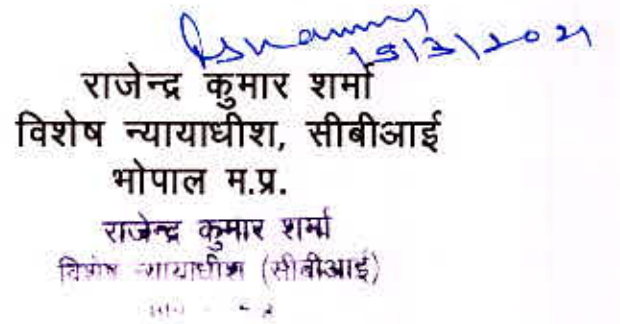 15/3/2021
राजेन्द्र कुमार शर्मा
विशेष न्यायाधीश, सीबीआई
भोपाल म.प्र.
राजेन्द्र कुमार शर्मा
विशेष न्यायाधीश (सीबीआई)